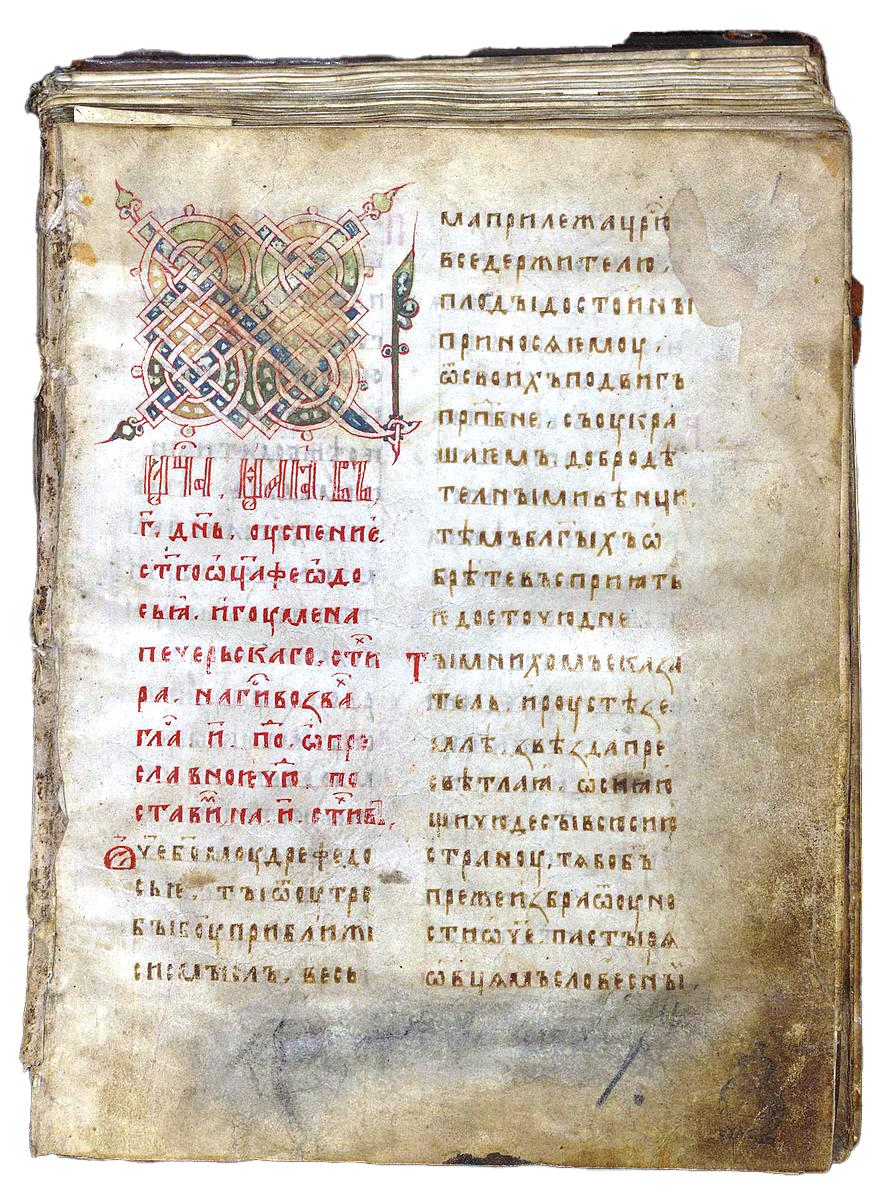 мⷭ҇ца. маиⷩ҇. въ.
г҃. дн҃ь. ѹспениѥ.
ст҃гоѡц҃афеѡдо
сьꙗ. игоумена
печерьскаго. стиⷯ
ра. наг҃ивозваⷯ
глⷭ҇а и҃. по. ѡпре
славноѥчюⷣ. по
ставиⷨ. на. и҃. стиⷯвъ.
Ѿчебо҃моудрефедо
сьѥ. тыѿоутро
быбо҃уприближи
сисмыслъ. весь
маприлежацрⷭ҇ю
вседержителю.
плодыдостоины
приносѧѥмоу.
ѿсвоихъподвигъ
прпⷣбне. съоукра
шаѥмъ. добродѣ
телнымивѣнци.
тѣмъблаг҃ыхъѡ
брѣтевъсприꙗть
ѥдостоуюдне
Тымнихомъсказа
тель. ироустѣзе
млѣ. ꙁвѣздапре
свѣтлаꙗ. ѡсиꙗю
шичюдесывсюсию
страноу. тѧбо҃ъ
прежеизбраѿоуно
стиѡч҃е. пастырѧ
ѡвцамъсловесны.